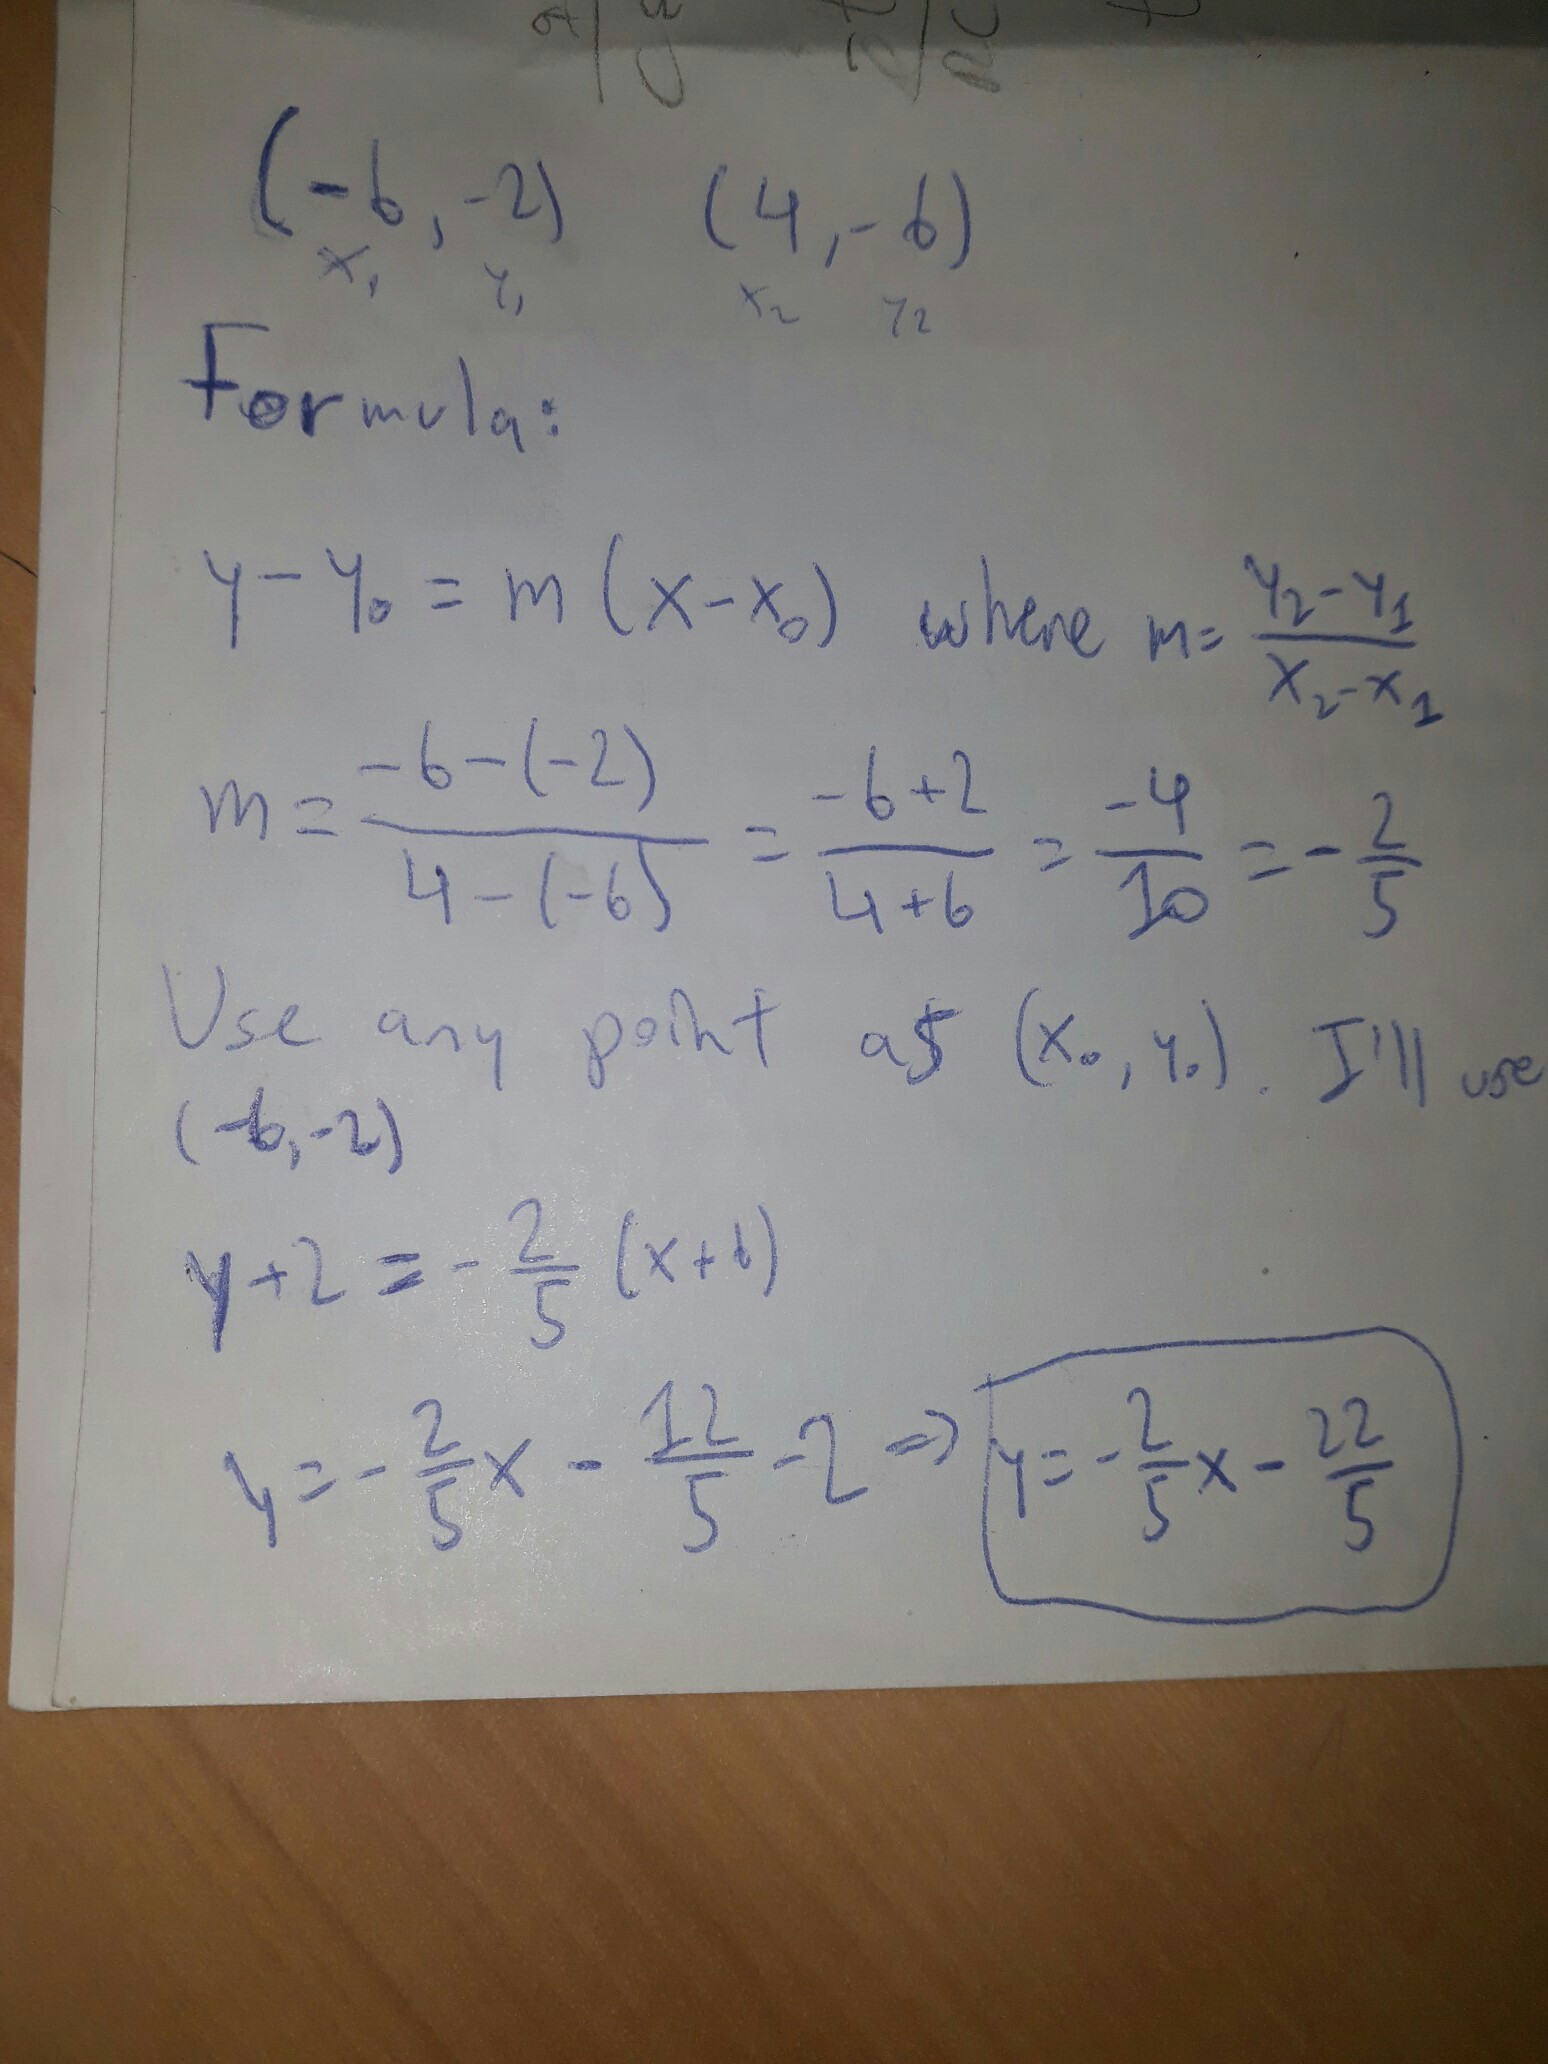 (-6, -2) (4, -6)
x₁ y₁ x₂ y₂
Formula:
y - y₀ = m (x - x₀) where m = (y₂ - y₁)/(x₂ - x₁)
m = (-6 - (-2))/(4 - (-6)) = (-6 + 2)/(4 + 6) = -4/10 = - 2/5
Use any point as (x₀, y₀). I'll use
(-6, -2)
y + 2 = - 2/5 (x + 6)
y = - 2/5 x - 12/5 - 2 ⇒ y = - 2/5 x - 22/5